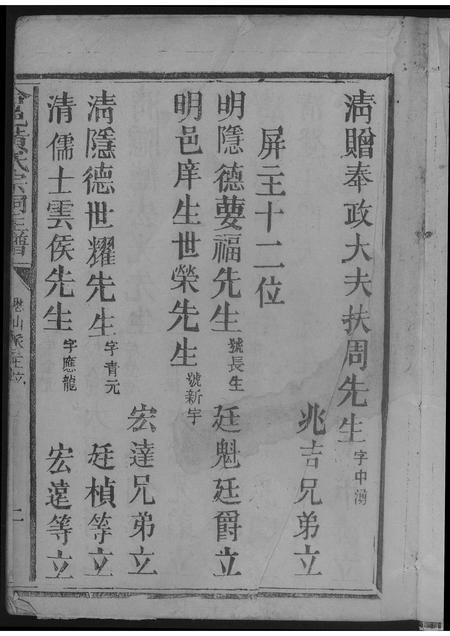 清贈奉政大夫扶周先生 字中溥
兆吉兄弟立
屏主十二位
明隱德夢福先生 號長生
廷魁廷爵立
明邑庠生世榮先生 號新宇
宏達兄弟立
清隱德世耀先生 字青元
廷楨等立
清儒士雲侯先生 字應龍
宏遠等立
邑黃氏宗祠主譜
山派主位
二